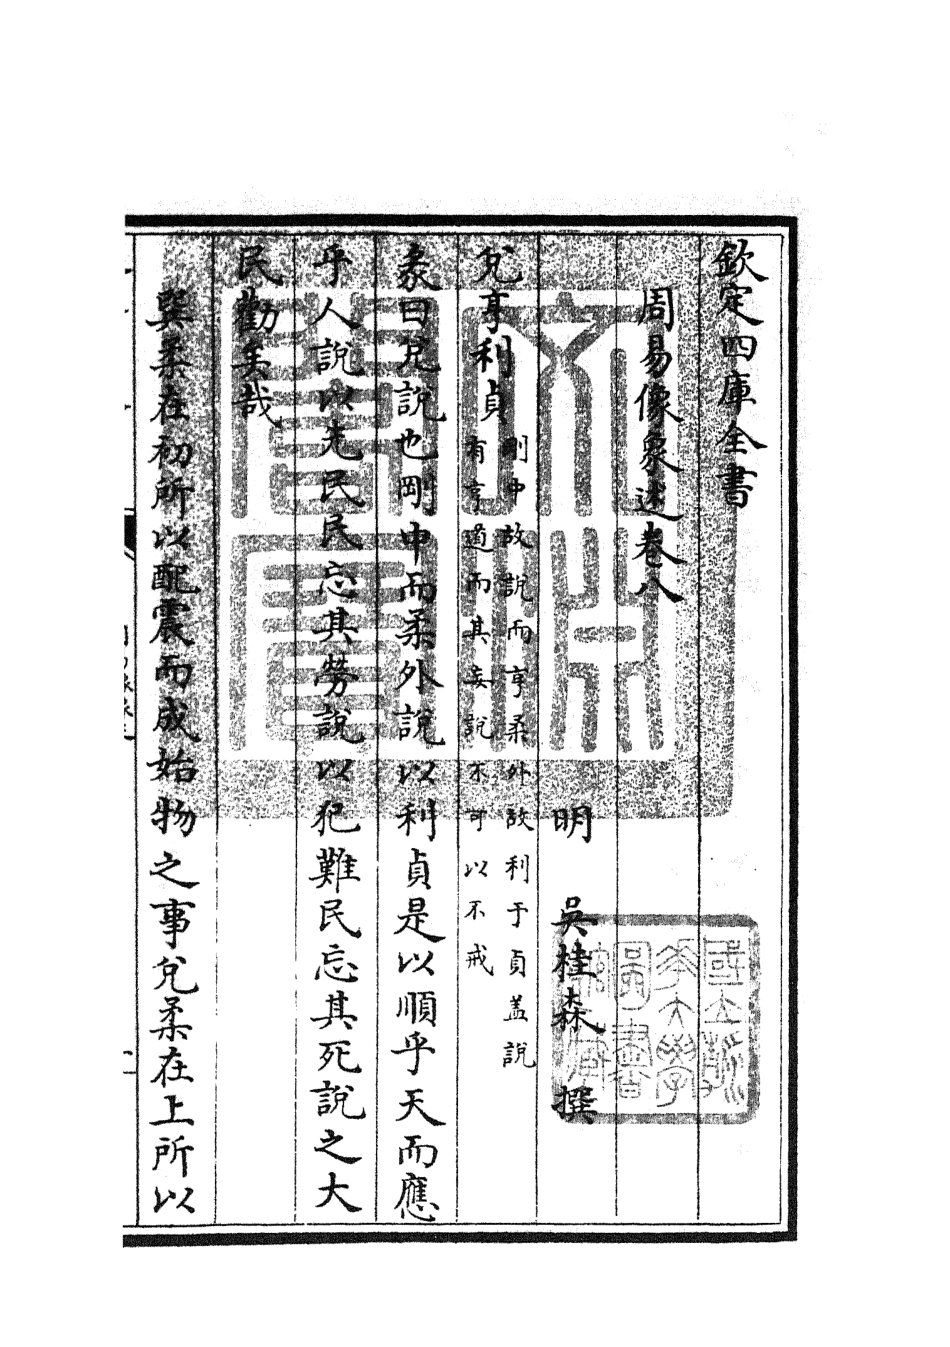 欽定四庫全書
周易像象述卷八
明 吳桂森 撰
兌亨利貞
剛中故說而亨柔外故利于貞蓋說
有亨道而其妄說不可以不戒
彖曰兌說也剛中而柔外說以利貞是以順乎天而應
乎人說以先民民忘其勞說以犯難民忘其死說之大
民勸矣哉
巽柔在初所以配震而成始物之事兌柔在上所以